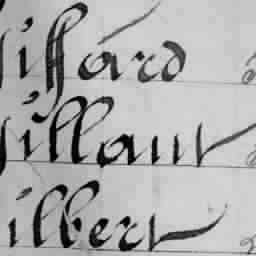 iffard
illaut
ilbert